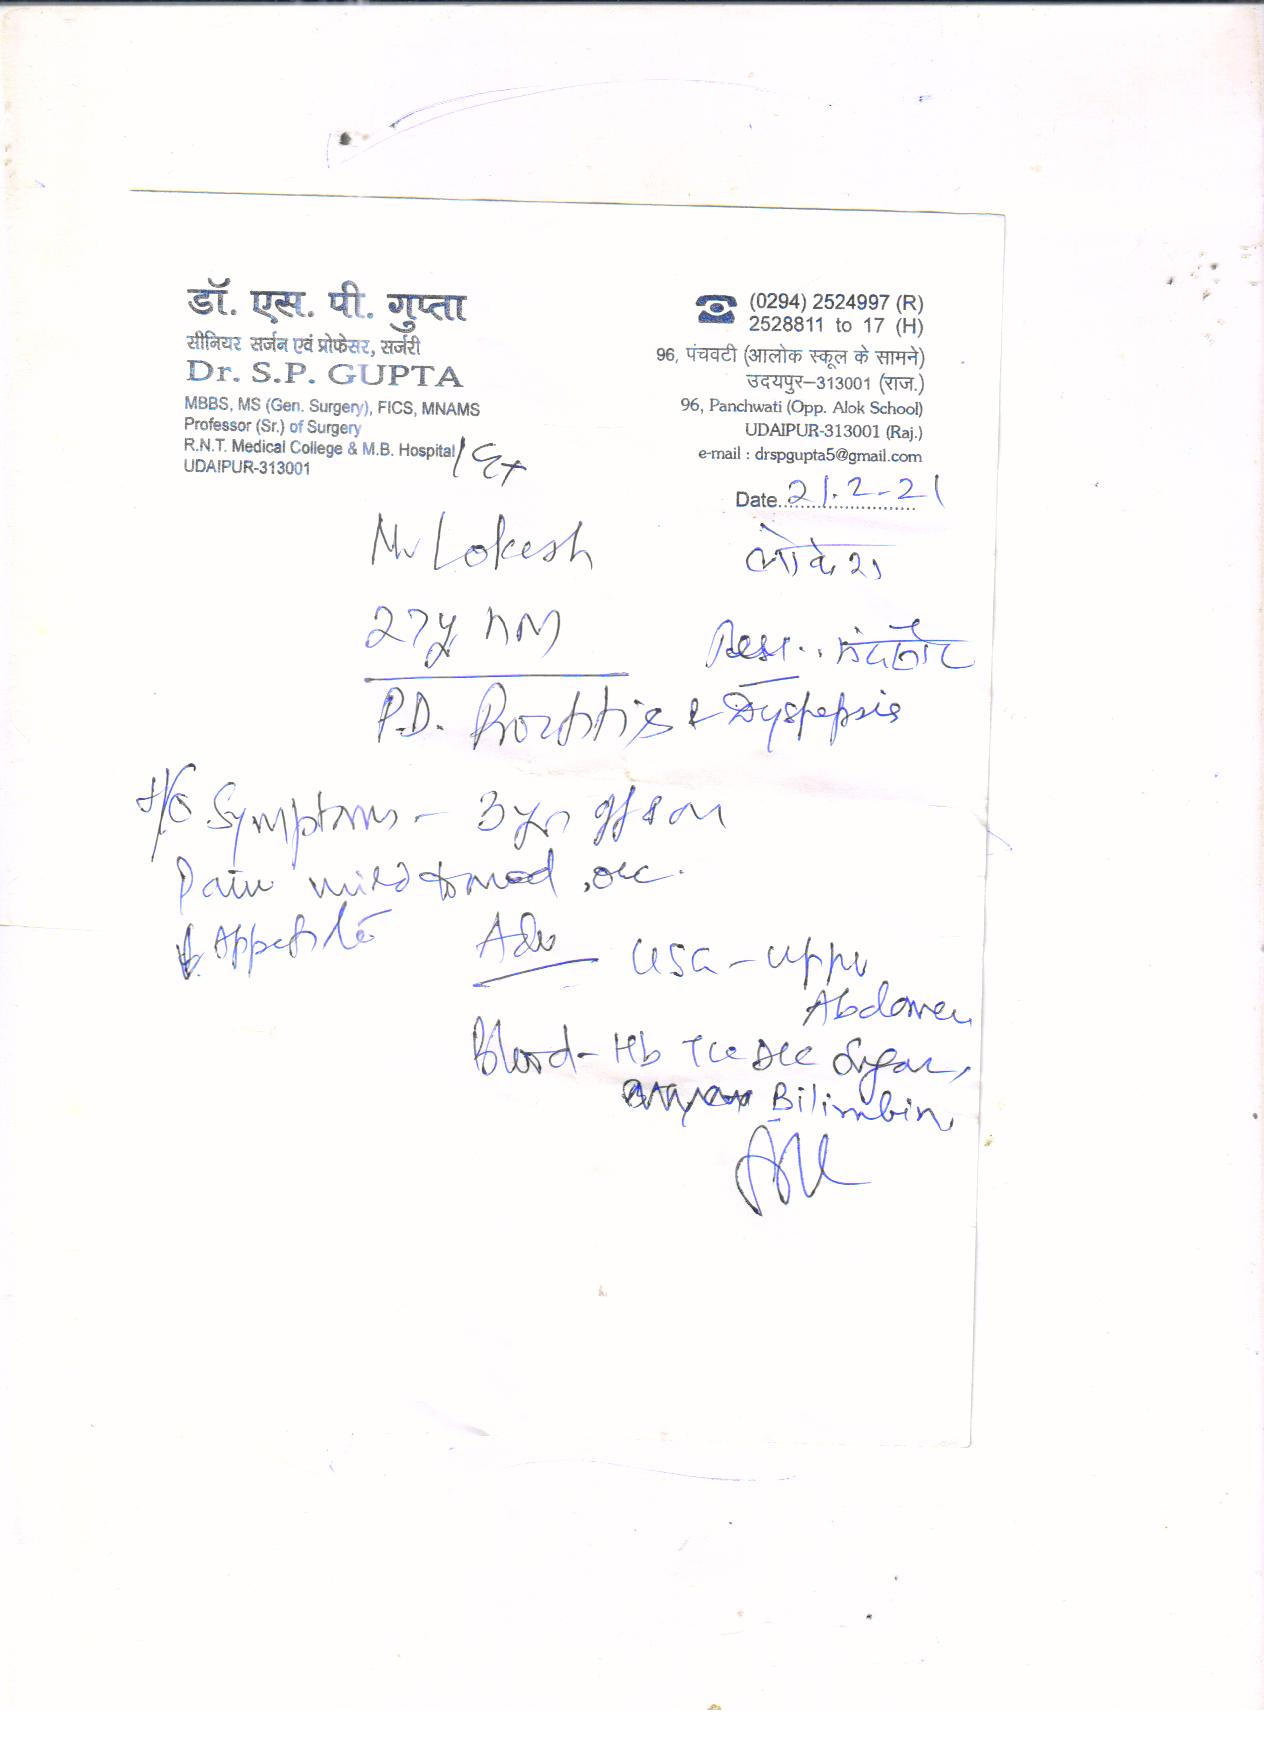 डॉ. एस. पी. गुप्ता
सीनियर सर्जन एवं प्रोफेसर, सर्जरी
Dr. S.P. GUPTA
MBBS, MS (Gen. Surgery), FICS, MNAMS
Professor (Sr.) of Surgery
R.N.T. Medical College & M.B. Hospital
UDAIPUR-313001
(0294) 2524997 (R)
2528811 to 17 (H)
96, पंचवटी (आलोक स्कूल के सामने)
उदयपुर–313001 (राज.)
96, Panchwati (Opp. Alok School)
UDAIPUR-313001 (Raj.)
e-mail : drspgupta5@gmail.com
Date 21.2-21
Mr Lokesh लोकेश
27y
P.D. & Dyspepsia
H/O Symptoms - 3 yrs off & on
Pain mild to mod, occ.
↓ Appetite
Adv USG - Upper
Abdomen
Blood - Hb TLC DLC Sugar,
Bilirubin